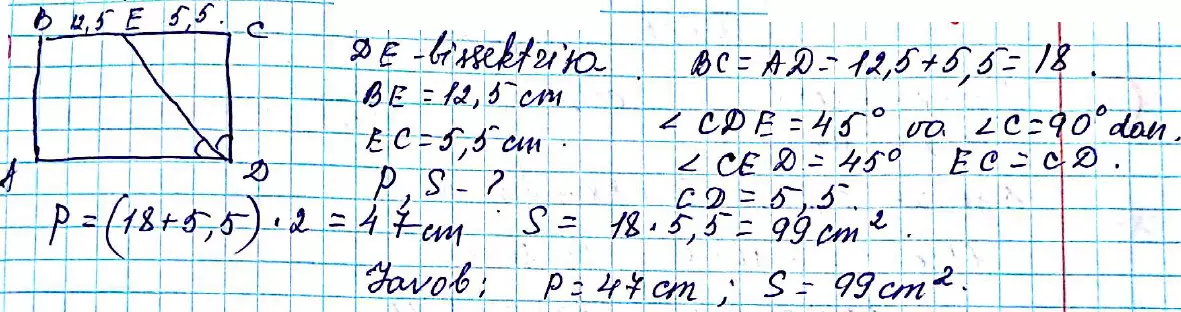 B 12,5 E 5,5. C
A D
DE - bissektrisa
BE = 12,5 cm
EC = 5,5 cm.
P, S - ?
BC = AD = 12,5 + 5,5 = 18.
∠CDE = 45° va ∠C = 90° dan.
∠CED = 45° EC = CD.
CD = 5,5.
P = (18 + 5,5) · 2 = 47 cm S = 18 · 5,5 = 99 cm².
Javob: P = 47 cm; S = 99 cm².